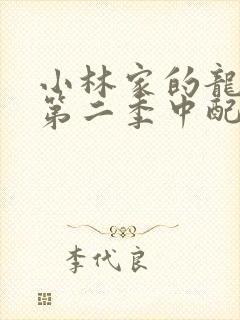 小林家的龍
第二季中配
李代良